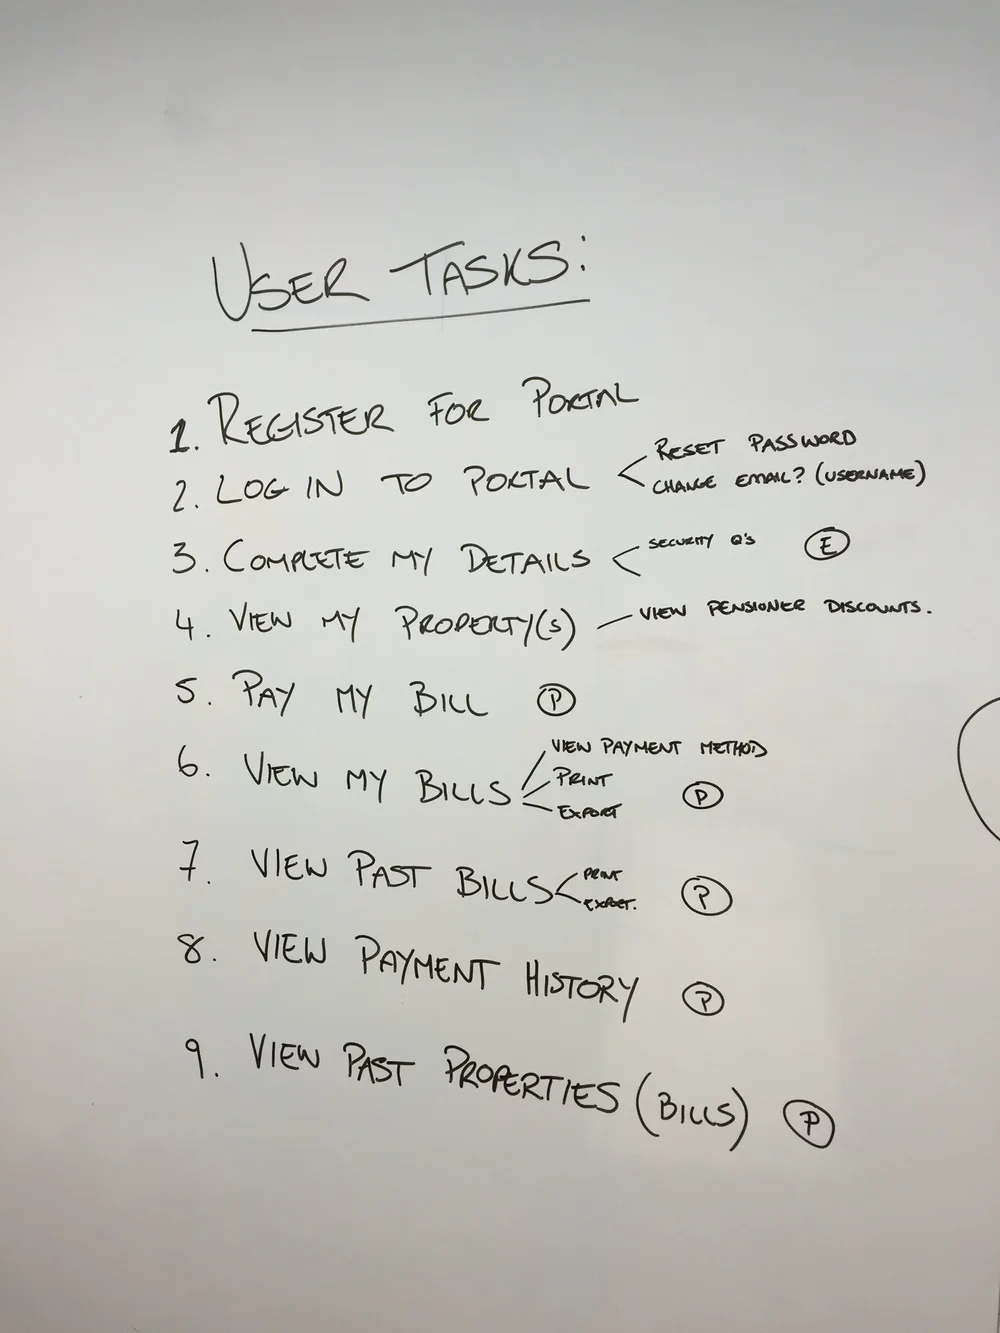 USER TASKS:
1. REGISTER FOR PORTAL
2. LOG IN TO PORTAL
RESET PASSWORD
CHANGE EMAIL? (USERNAME)
3. COMPLETE MY DETAILS
SECURITY Q'S
E
4. VIEW MY PROPERTY(S)
VIEW PENSIONER DISCOUNTS.
5. PAY MY BILL P
6. VIEW MY BILLS
VIEW PAYMENT METHOD
PRINT
EXPORT
P
7. VIEW PAST BILLS
PRINT
EXPORT.
P
8. VIEW PAYMENT HISTORY P
9. VIEW PAST PROPERTIES (BILLS) P